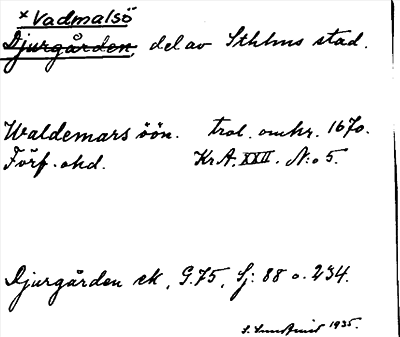 x Vadmalsö
Djurgården, del av Sthlms stad.
Waldemars öön. trol. omkr. 1670.
Förf. okd. Kr.A. XXII. N:o 5.
Djurgården ek, G.75, Sj: 88 o. 234.
1935.